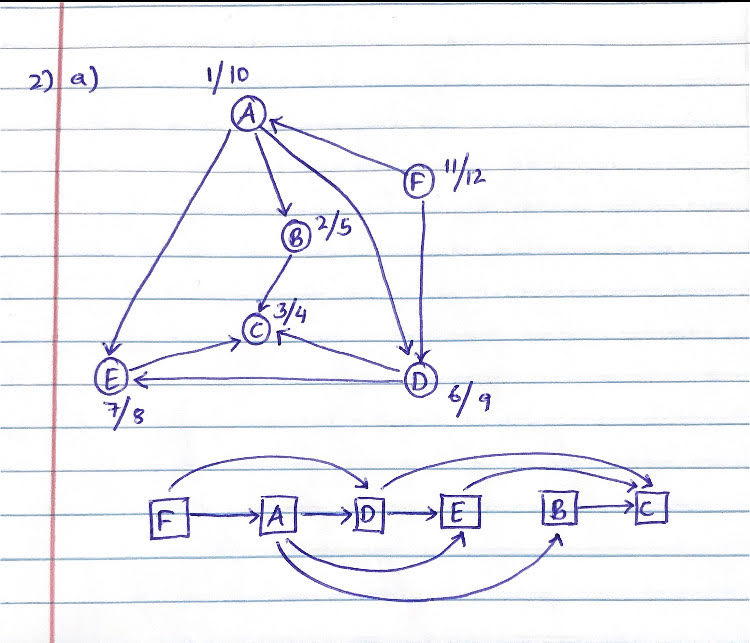 2) a)
1/10
A
F 11/12
B 2/5
C 3/4
E
D
7/8
6/9
F A D E B C